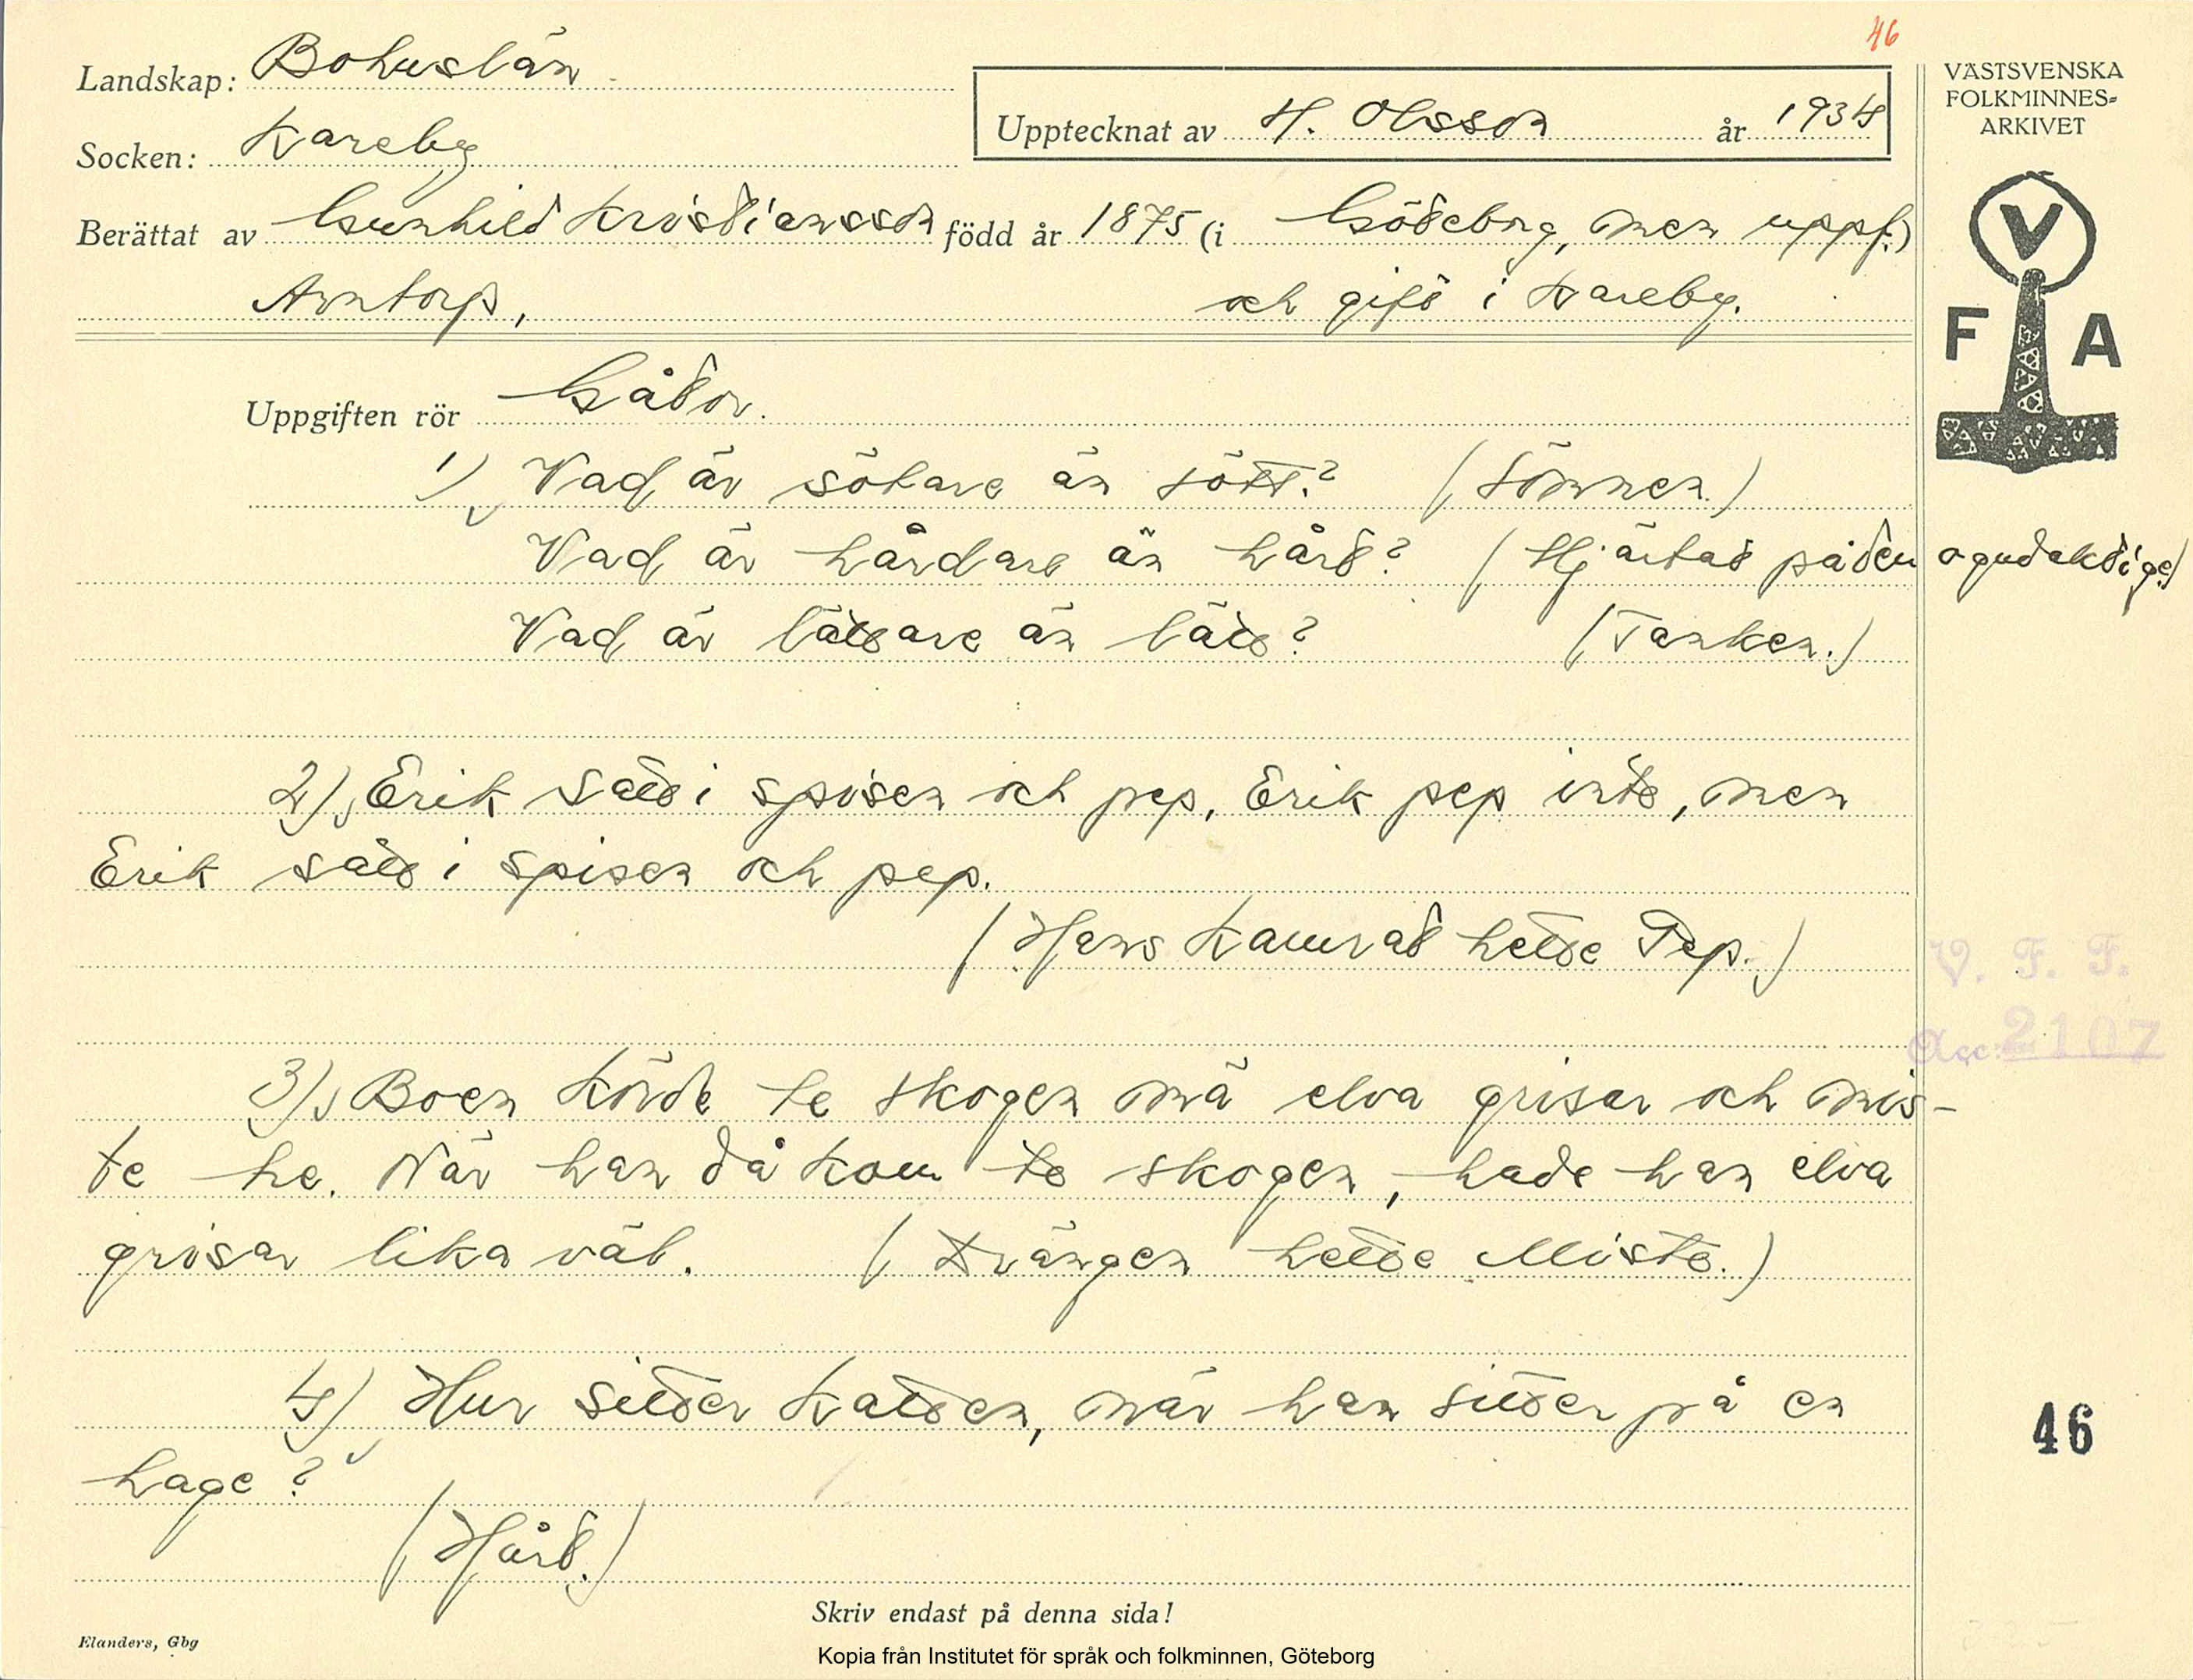 46
Landskap: Bohuslän
Socken: Kareby
Upptecknat av H. Olsson år 1934
VÄSTSVENSKA
FOLKMINNES-
ARKIVET
Berättat av Gunhild Kristiansson född år 1875 (i Göteborg, men uppf.)
Arntorp, och gift i Kareby.
V
F A
Uppgiften rör Gåtor.
1) Vad är sötare än sött? (Sömnen.)
Vad är hårdare än hårt? (Hjärtat på den ogudaktige)
Vad är lättare än lätt? (Tanken.)
2) Erik satt i spisen och pep, Erik pep inte, men
Erik satt i spisen och pep.
(Hans kamrat hette Pep.)
V. F. F.
Acc. 2107
3) Boen körde te skogen mä elva grisar och mis-
te he. När han då kom te skogen, hade han elva
grisar lika väl. (Drängen hette Miste.)
4) Hur sitter katten, när han sitter på en
hage?
46
(Hårt.)
Skriv endast på denna sida!
Elanders, Gbg
Kopia från Institutet för språk och folkminnen, Göteborg